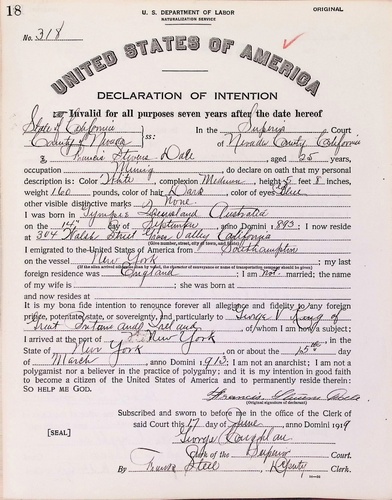 18
U. S. DEPARTMENT OF LABOR
NATURALIZATION SERVICE
ORIGINAL
No. 318
UNITED STATES OF AMERICA
DECLARATION OF INTENTION
Invalid for all purposes seven years after the date hereof
State of California
County of Nevada ss: In the Superior Court
of Nevada County California
I, Francis Stevens Dale, aged 25 years,
occupation Mining, do declare on oath that my personal
description is: Color White, complexion Medium, height 5 feet 8 inches,
weight 160 pounds, color of hair Dark, color of eyes Blue
other visible distinctive marks None
I was born in Gympie Queensland Australia
on the 14th day of September, anno Domini 1893; I now reside
at Street Grass Valley California
(Give number, street, city or town, and State.)
I emigrated to the United States of America from Southampton
on the vessel New York; my last
(If the alien arrived otherwise than by vessel, the character of conveyance or name of transportation company should be given.)
foreign residence was England; I am not married; the name
of my wife is; she was born at
and now resides at
It is my bona fide intention to renounce forever all allegiance and fidelity to any foreign
prince, potentate, state, or sovereignty, and particularly to George V King of
Great Britain and Ireland, of whom I am now a subject;
I arrived at the port of New York, in the
State of New York, on or about the 15th day
of March, anno Domini 1913; I am not an anarchist; I am not a
polygamist nor a believer in the practice of polygamy; and it is my intention in good
faith to become a citizen of the United States of America and to permanently reside therein:
SO HELP ME GOD.
Francis Stevens Dale
(Original signature of declarant.)
Subscribed and sworn to before me in the office of the Clerk of
said Court this 17 day of June, anno Domini 1919
[SEAL]
George Coughlan
Clerk of the Superior Court.
By Steel Deputy Clerk.